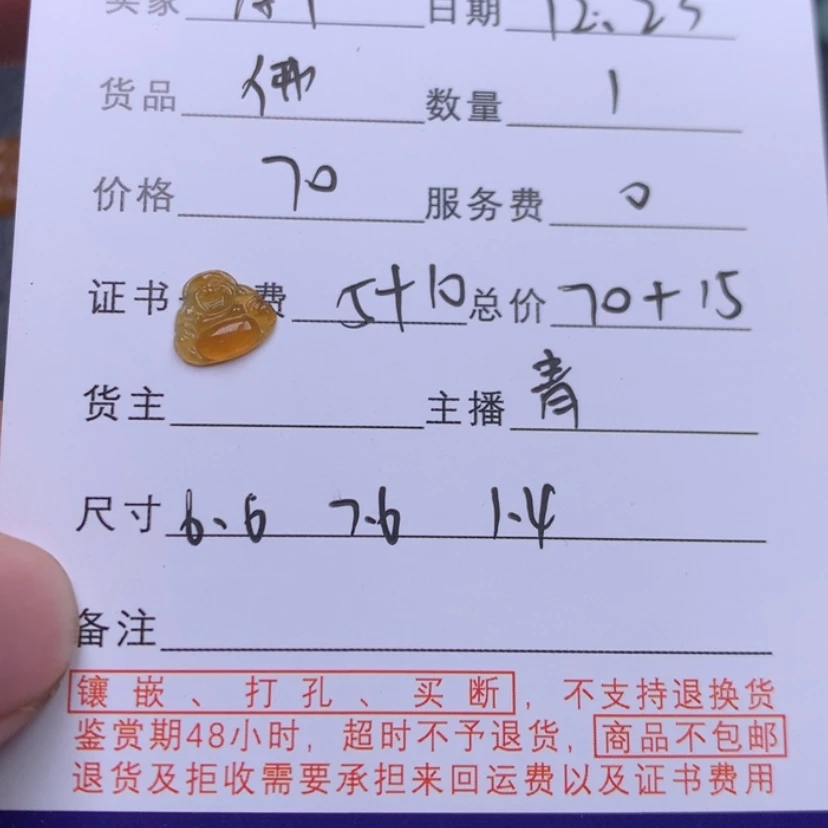 买家 日期 12.25
货品 佛 数量 1
价格 70 服务费 0
证书 费 5+10 总价 70+15
货主 主播 青
尺寸 6.6 7.6 1.4
备注
镶嵌、打孔、买断，不支持退换货
鉴赏期48小时，超时不予退货，商品不包邮
退货及拒收需要承担来回运费以及证书费用